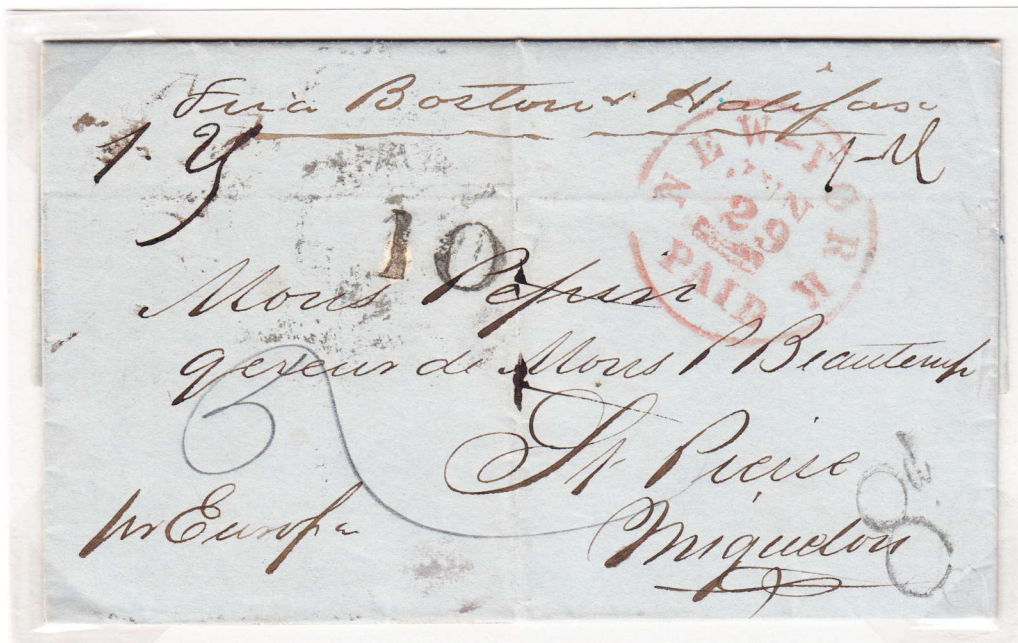 via Boston & Halifax
NEW-YORK
JUN
29
PAID
10
Mons Pepin
gereur de Mons P Beautemp
St Pierre
Miquelon
8d
pr Europa